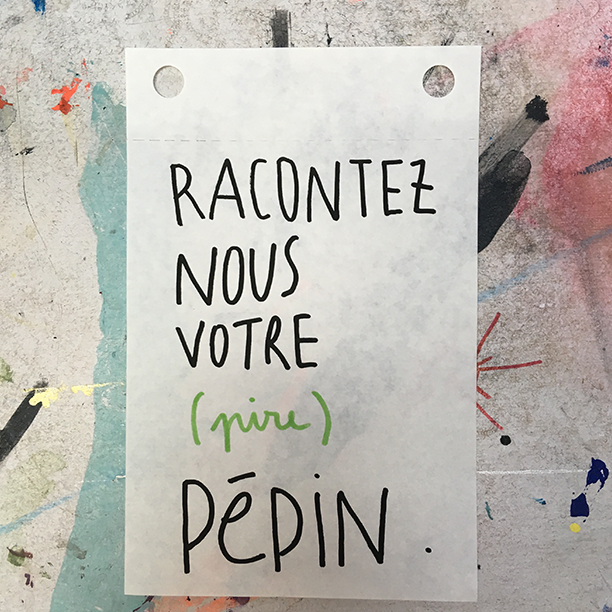 RACONTEZ
NOUS
VOTRE
(pire)
PÉPIN.